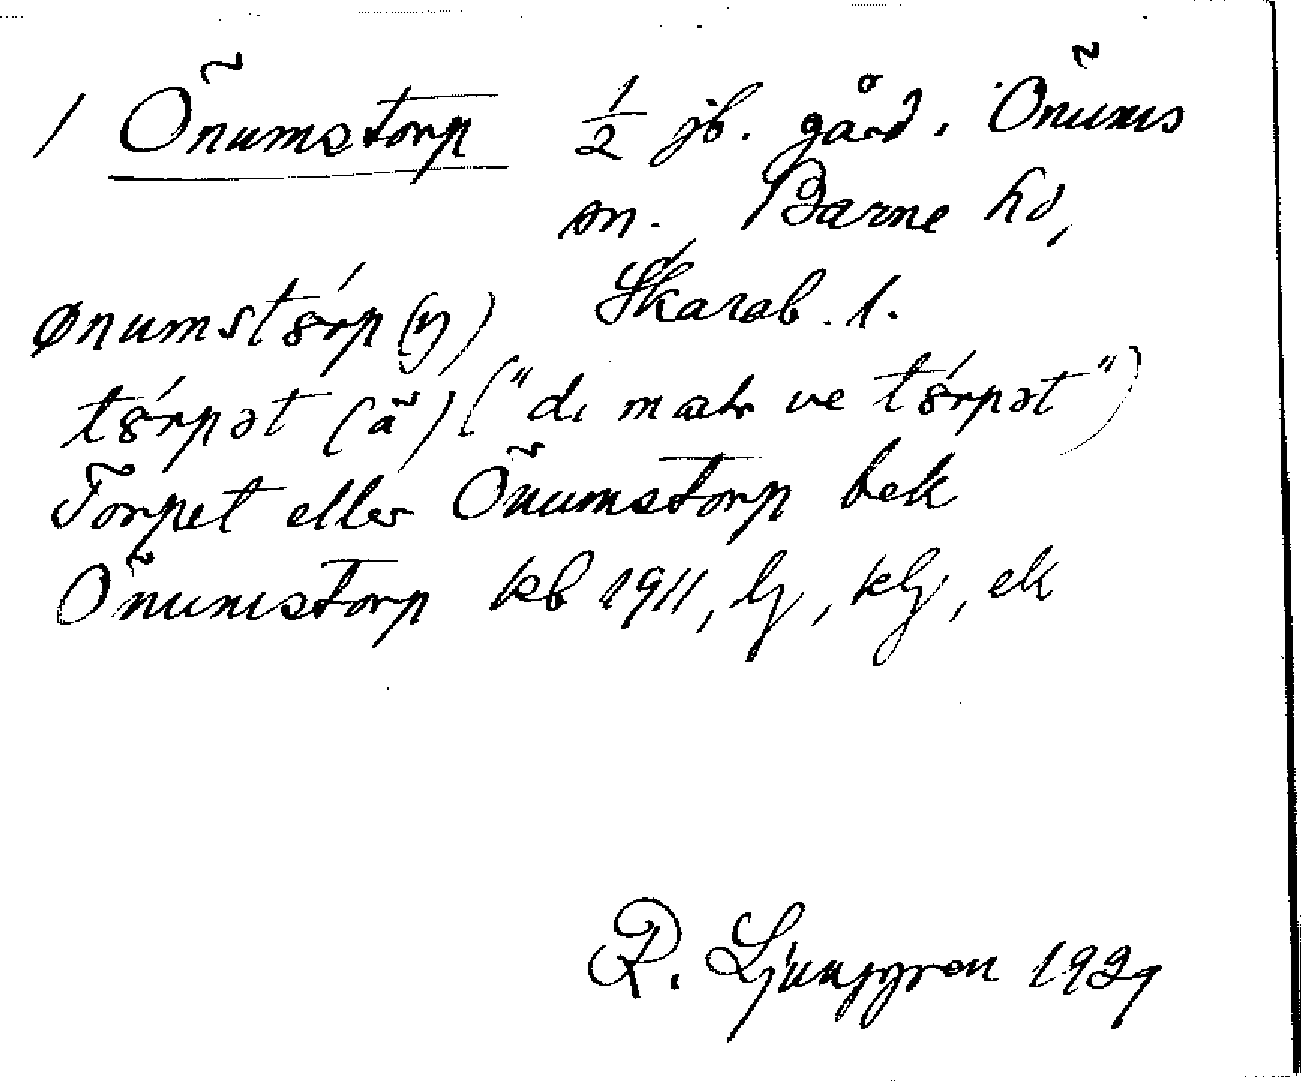 1 Önumstorp 1/2 jb. gård. Önums
sn. Barne hd,
Skarab. l.
ønumstórp(ŋ)
tórpət (ä) ("di        ve tórpət")
Torpet eller Önumstorp bek
Önumstorp kb 1911, lj, klj, ek
R. Ljunggren 1929